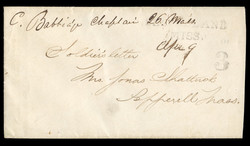 C. Babbidge Chaplain 26. Mass
MISS.
Apr 9
3
Soldier's letter
Mrs Jonas Shattuck
Pepperell Mass.